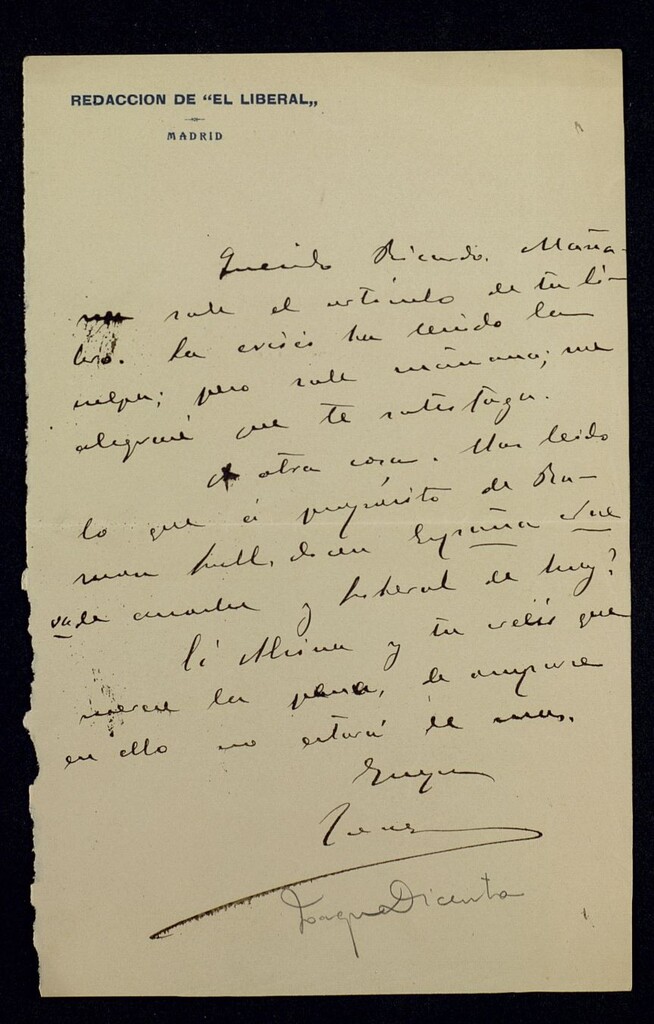 REDACCION DE "EL LIBERAL„
MADRID
Querido Ricardo. Maña-
na sale el artículo de tu li-
bro. La crisis ha tenido la
culpa; pero sale mañana; me
alegraré que te satisfaga.
A otra cosa. Has leido
lo que á propósito de Ra-
mon Lull, dicen España Nue
va de anoche y Liberal de hoy?
Si Alsina y tu creéis que
merece la pena,
en ello no estará de mas.
Joaquin Dicenta